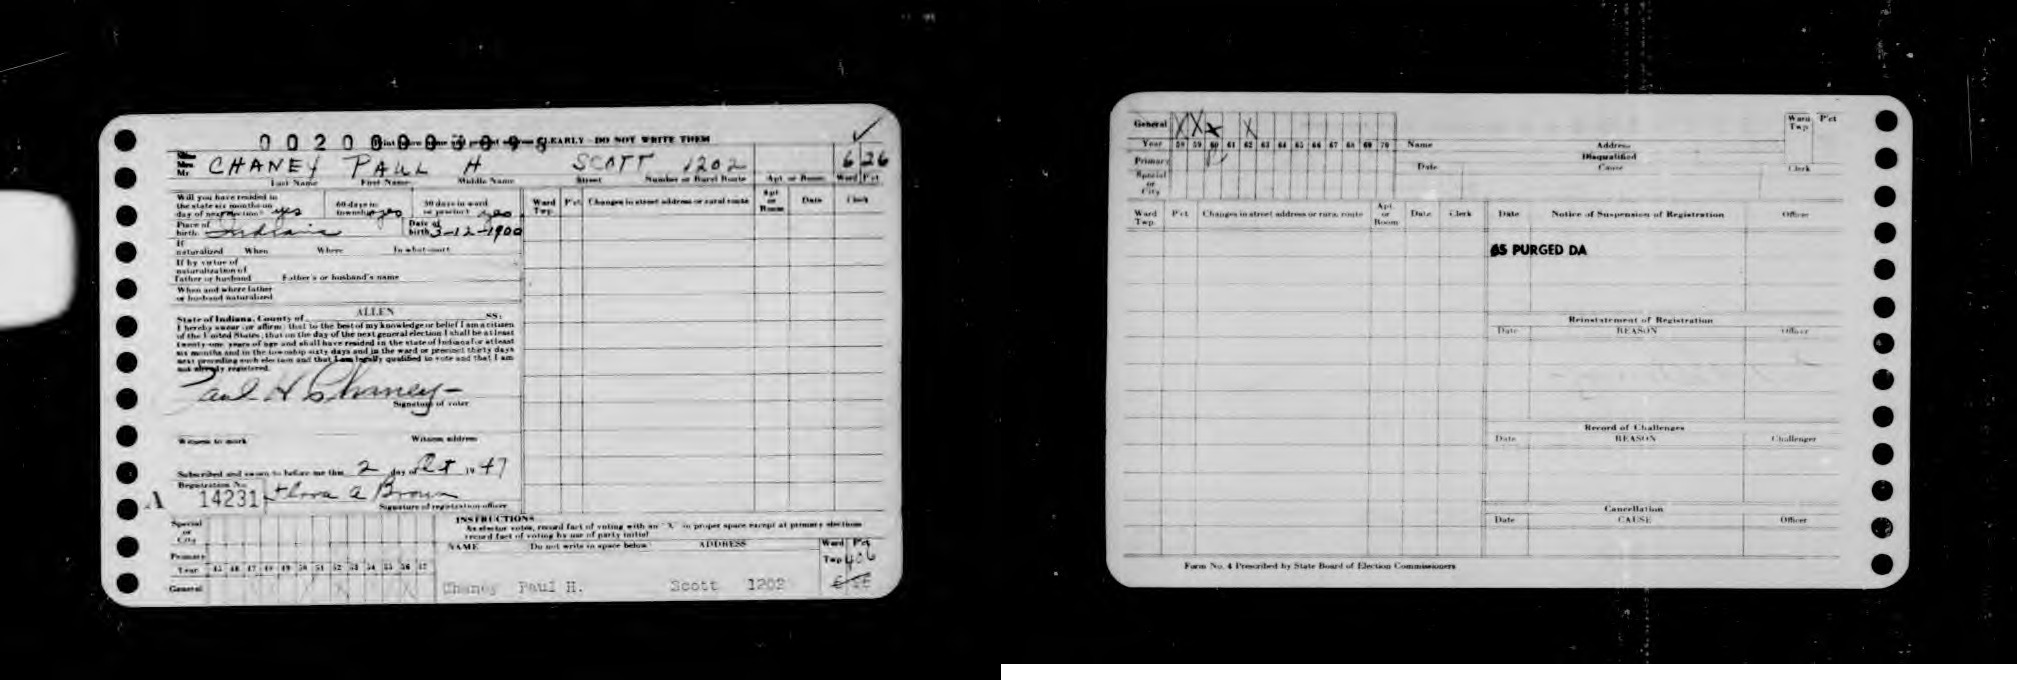 CLEARLY - DO NOT WRITE THEM
Mrs. Mr. CHANEY PAUL H SCOTT 1202 6 26
Last Name First Name Middle Name Street Number or Rural Route Apt. or Room Ward Pct
Will you have resided in the state six months on day of next election? yes 60 days in township? yes 30 days in ward or precinct? yes
Ward Twp. Pct. Changes in street address or rural route Apt. or Room Date Clerk
Place of birth Indiana Date of birth 3-12-1900
If naturalized When Where In what court
If by virtue of naturalization of Father or husband Father's or husband's name
When and where father or husband naturalized
State of Indiana, County of ALLEN SS:
I hereby swear (or affirm) that to the best of my knowledge or belief I am a citizen
of the United States; that on the day of the next general election I shall be at least
twenty-one years of age and shall have resided in the state of Indiana for at least
six months and in the township sixty days and in the ward or precinct thirty days
next preceding such election and that I am legally qualified to vote and that I am
not already registered.
Paul H Chaney
Signature of voter
Witness to mark Witness address
Subscribed and sworn to before me this 2 day of Oct 19 47
Registration No. A 14231 Flora A Brown
Signature of registration officer
Special or City
Primary
Year 45 46 47 48 49 50 51 52 53 54 55 56 57
General
INSTRUCTIONS
As elector votes, record fact of voting with an "X" in proper space except at primary elections
record fact of voting by use of party initial
NAME Do not write in space below ADDRESS Ward Twp Pct
406
Chaney Paul H. Scott 1202
General X X X X
Year 58 59 60 61 62 63 64 65 66 67 68 69 70 Name Address Ward Twp. Pct
Primary
Special or City
Disqualified
Date Cause Clerk
Ward Twp. Pct Changes in street address or rural route Apt. or Room Date Clerk Date Notice of Suspension of Registration Officer
65 PURGED DA
Reinstatement of Registration
Date REASON Officer
Record of Challenges
Date REASON Challenger
Cancellation
Date CAUSE Officer
Form No. 4 Prescribed by State Board of Election Commissioners